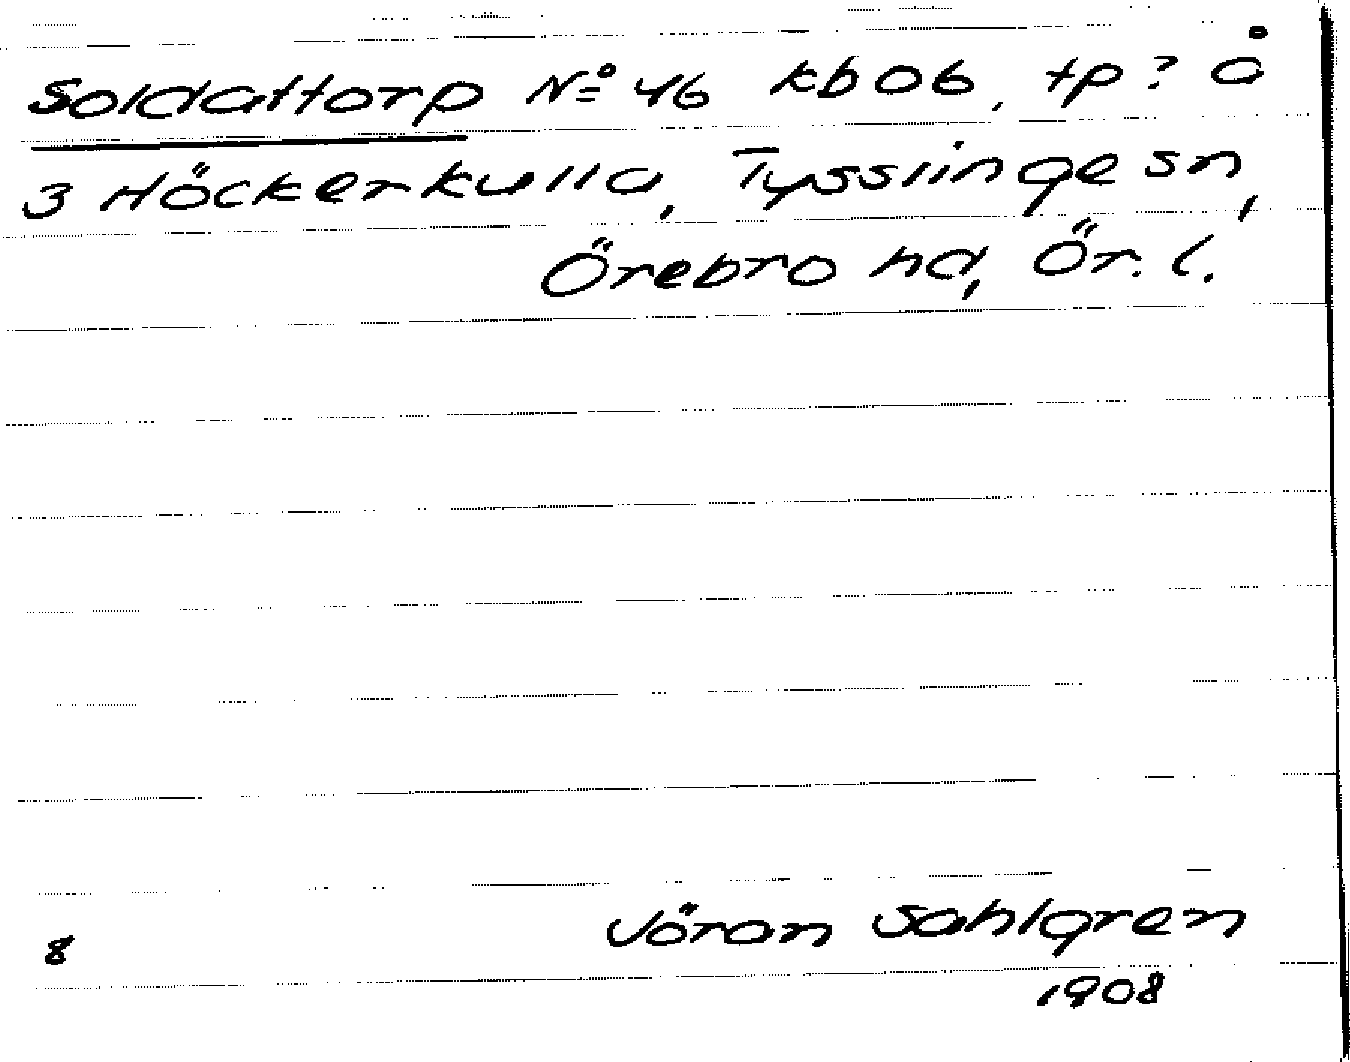 Soldattorp No 46 kb 06, tp? å
3 Höckerkulla, Tysslinge sn,
Örebro hd, Ör. l.
Jöran Sahlgren
8
1908